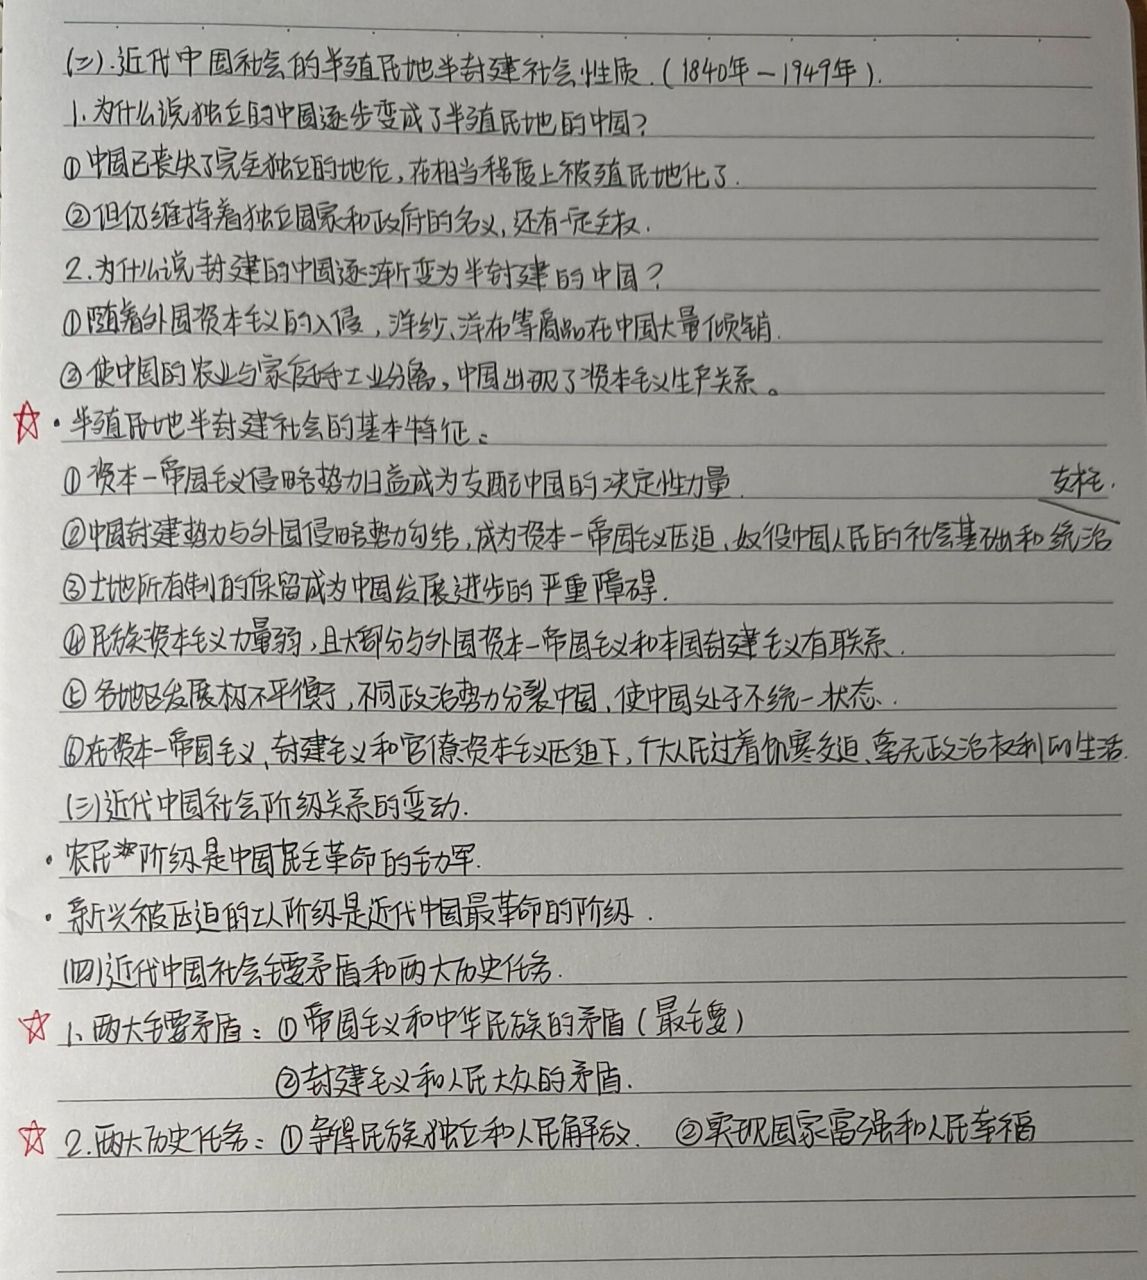 (二).近代中国社会的半殖民地半封建社会性质.(1840年-1949年).
1.为什么说独立的中国逐步变成了半殖民地的中国?
①中国已丧失了完全独立的地位,在相当程度上被殖民地化了.
②但仍维持着独立国家和政府的名义,还有一定主权.
2.为什么说封建的中国逐渐变为半封建的中国?
①随着外国资本主义的入侵,洋纱、洋布等商品在中国大量倾销.
②使中国的农业与家庭手工业分离,中国出现了资本主义生产关系。
☆·半殖民地半封建社会的基本特征:
①资本-帝国主义侵略势力日益成为支配中国的决定性力量.
支柱.
②中国封建势力与外国侵略势力勾结,成为资本-帝国主义压迫、奴役中国人民的社会基础和统治
③土地所有制的保留成为中国发展进步的严重障碍.
④民族资本主义力量弱,且大部分与外国资本-帝国主义和本国封建主义有联系.
⑤各地区发展极不平衡,不同政治势力分裂中国,使中国处于不统一状态.
⑥在资本-帝国主义、封建主义和官僚资本主义压迫下,广大人民过着饥寒交迫、毫无政治权利的生活.
(三)近代中国社会阶级关系的变动.
·农民阶级是中国民主革命的主力军.
·新兴被压迫的工人阶级是近代中国最革命的阶级.
(四)近代中国社会主要矛盾和两大历史任务.
☆1、两大主要矛盾:①帝国主义和中华民族的矛盾(最主要)
②封建主义和人民大众的矛盾.
☆2.两大历史任务:①争得民族独立和人民解放. ②实现国家富强和人民幸福